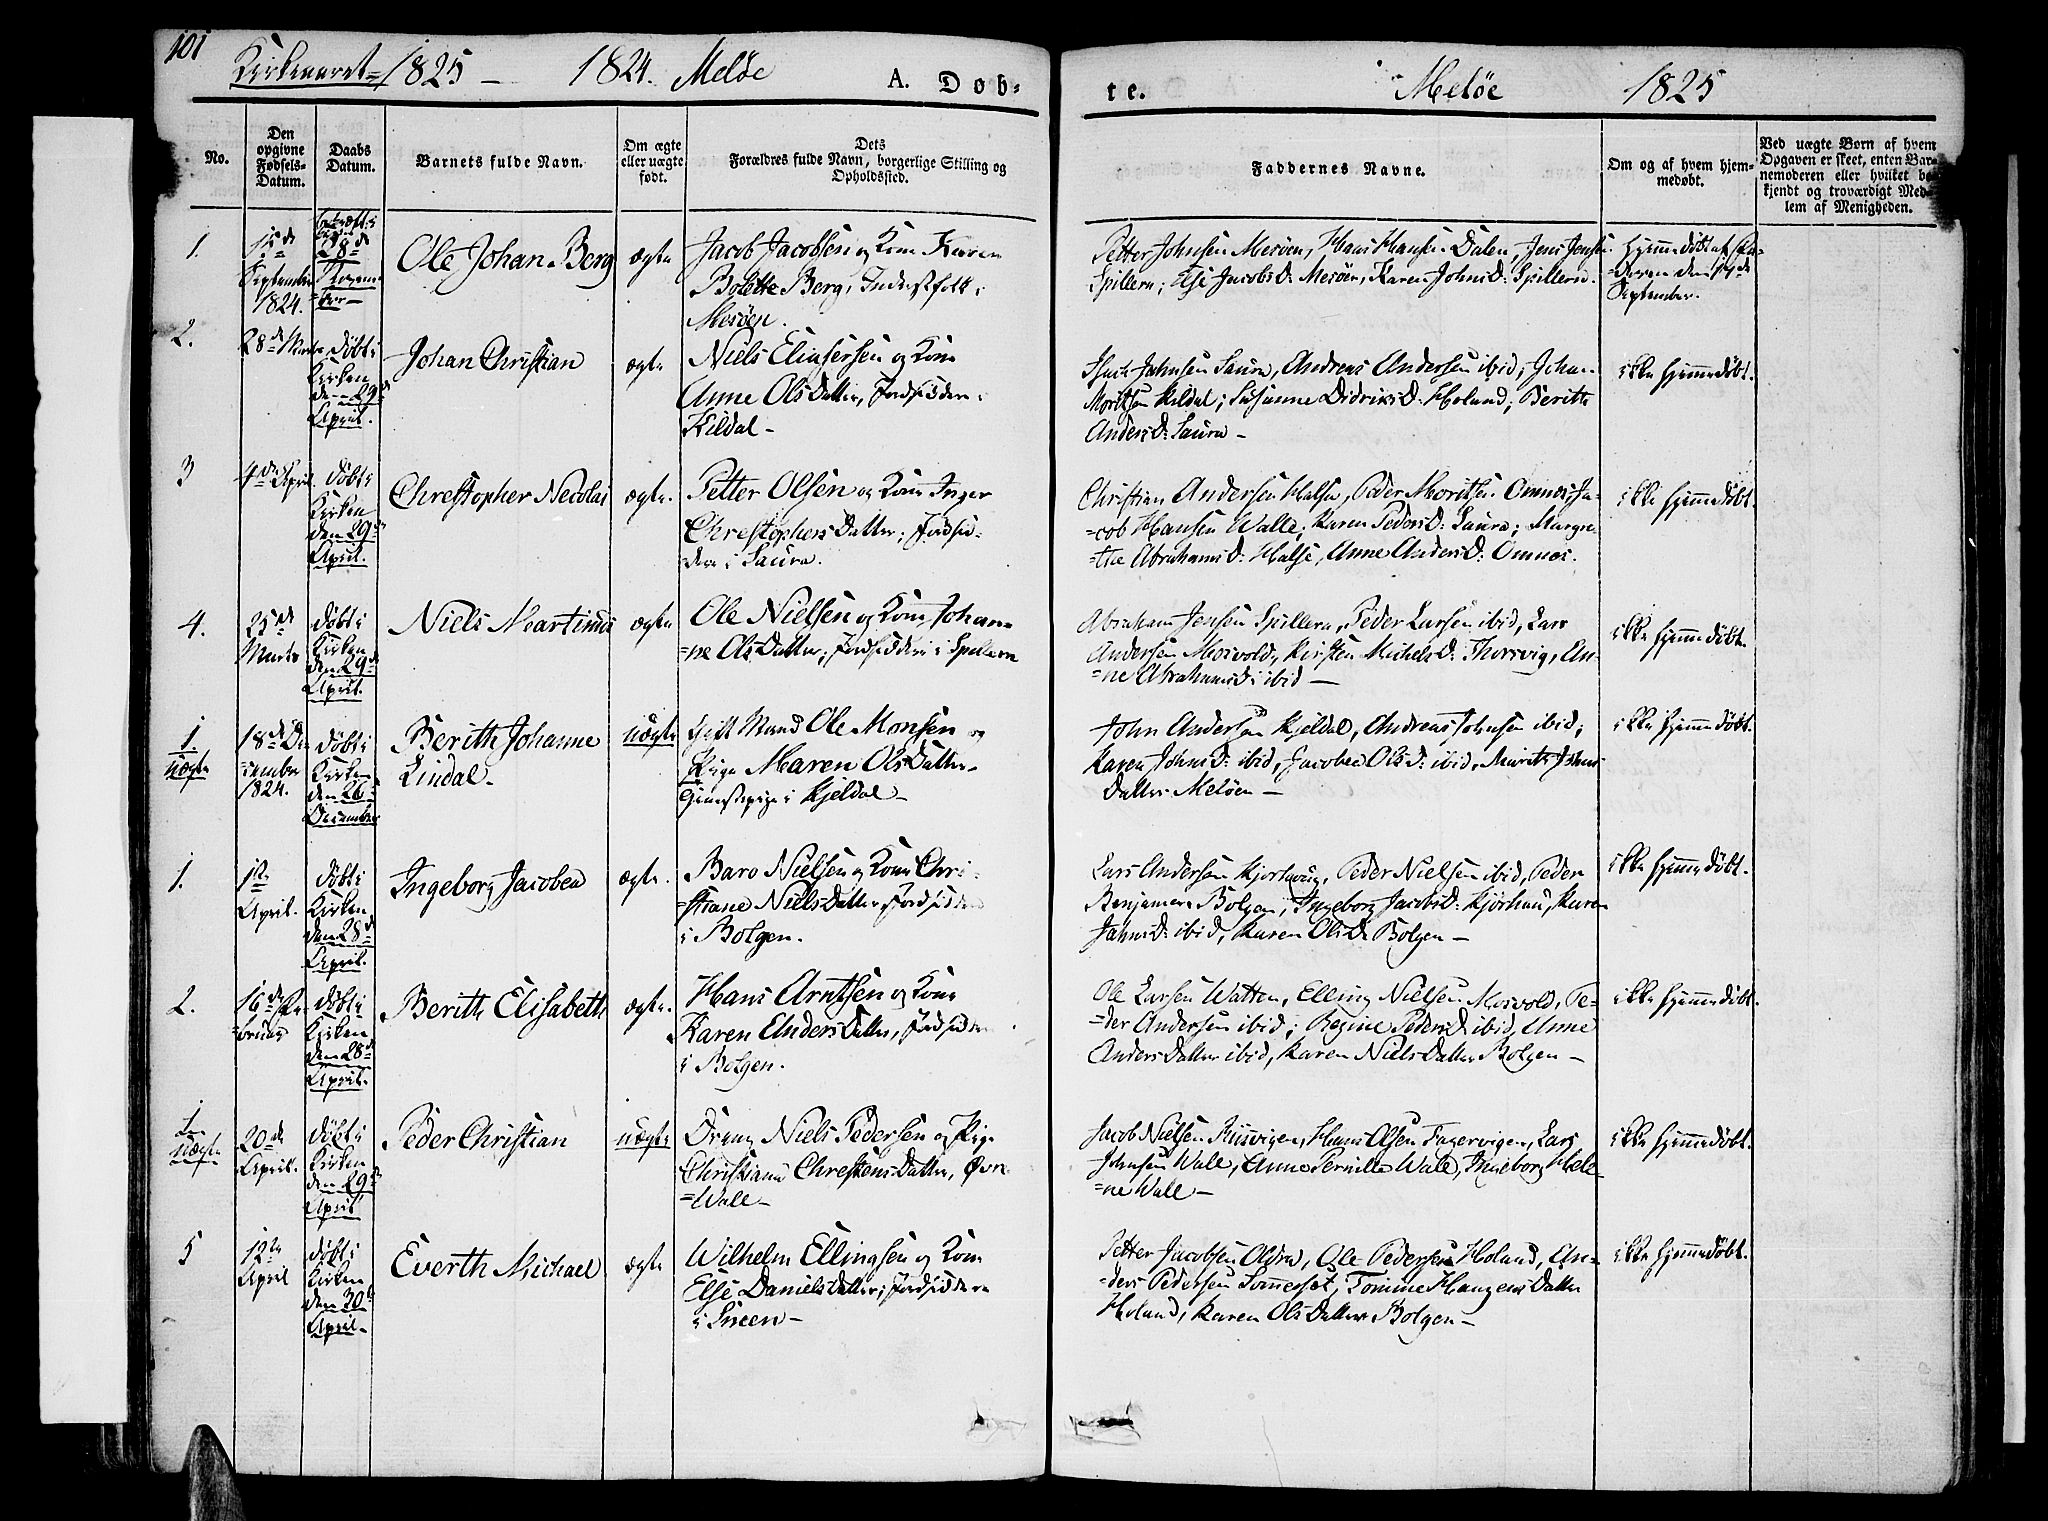 101
Kirkeaaret 1825 – 1824. Meløe A. Døb-
te. Meløe 1825
No.
Den
opgivne
Fødsels-
Datum.
Daabs
Datum.
Barnets fulde Navn.
Om ægte
eller uægte
født.
Dets
Forældres fulde Navn, borgerlige Stilling og
Opholdssted.
Faddernes Navne.
Om og af hvem hjem-
medøbt.
Ved uægte Børn af hvem
Opgaven er skeet, enten Bar-
nemoderen eller hvilket be-
kjendt og troværdigt Med-
lem af Menigheden.
1.
15de
September
1824.
28de
Novem-
=ber
Ole Johan Berg
ægte
Jacob Jacobsen og Kone Karen
Bolette Berg, Inderstfolk i
Mesøen.
Petter Johnsen Mesøen, Hans Hansen Dalen, Jens Jensen
Spillern; Else JacobsD: Mesøen, Karen JohnsD: Spillern.
Hjemmedøbt af Fa-
=deren den 19de
September.
2.
28de Marts
døbt i
Kirken
den 29de
April.
Johan Christian
ægte
Niels Eliasersen og Kone
Anne OlsDatter, Jordsiddere i
Kildal –
Johnsen Saura, Andreas Andersen ibid, Johan
Moritsen Kildal; Susanne DidriksD: Holand; Berith
AndersD: Saura –
ikke hjemmedøbt.
3
4de April
døbt i
Kirken
den 29de
April.
Christopher Necolai
ægte.
Petter Olsen og Kone Inger
ChrestophersDatter; Jordsid-
=dere i Saura.
Christian Andersen Halse, Peder Moritsen Omnes, Ja-
=cob Hansen Walle; Karen PedersD: Saura; Margre-
=the AbrahamsD: Halse, Anne AndersD: Omnes.
ikke hjemmedøbt.
4.
25de
Marts
døbt i
Kirken
den 29de
April.
Niels Martinus
ægte
Ole Nielsen og Kone Johan-
=ne OlsDatter; Jordsiddere i Spillern
Abraham Jensen Spillern, Peder Larsen ibid, Lars
Andersen Mosvold, Kirsten MichelsD: Thorsvig, An-
=ne AbrahamsD: ibid –
ikke hjemmedøbt.
1.
uægte
18de De-
=cember
1824.
døbt i
Kirken
den 26de
December
Berith Johanne
Lindal –
uægte
Gift Mand Ole Monsen og
Pige Maren OlsDatter
Tjenestepige i Kjeldal –
John Andersen Kjeldal, Andreas Johnsen ibid;
Karen JohnsD: ibid, Jacobea OlsD: ibid, Marith Johns
Datter Meløen –
ikke hjemmedøbt.
1.
1ste
April.
døbt i
Kirken
den 28de
April.
Ingeborg Jacobea
ægte.
Baro Nielsen og Kone Chri-
=stiane NielsDatter, Jordsiddere
i Bolgen.
Lars Andersen Kjørhaug, Peder Nielsen ibid, Peder
Benjamens. Bolgen, Ingeborg JacobsD: Kjørhaug, Karen
JohnsD: ibid, Karen OlsD: Bolgen –
ikke hjemmedøbt.
2.
16de Fe-
=bruar
døbt i
Kirken
den 28de
April.
Berith Elisabeth
ægte.
Hans Arntsen og Kone
Karen AndersDatter, Jordsiddere
i Bolgen.
Ole Larsen Watten, Elling Nielsen Mosvold, Pe-
=der Andersen ibid; Regine PedersD: ibid, Anne
AndersDatter ibid, Karen NielsDatter Bolgen –
ikke hjemmedøbt.
1.
uægte
20de
April.
døbt i
Kirken
den 29de
April
Peder Christian
uægte
Dreng Niels Pedersen og Pige
Christiana ChrestensDatter, Øvre
=Wall –
Jacob Nielsen Kusvigen, Hans Olsen Fagervigen, Lars
Johnsen Wall, Anne Pernille Wall, Ingeborg Hele-
=ne Wall –
ikke hjemmedøbt.
5
12te
April
døbt i
Kirken
den 30te
April –
Everth Michael
ægte
Wilhelm Ellingsen og Kone
Else DanielsDatter; Jordsiddere
i Sneen –
Petter Jacobsen Oldra, Ole Pedersen Holand, An-
=ders Pedersen Sommerset, Tomine HansensDatter
Holand, Karen OlsDatter Bolgen –
ikke hjemmedøbt.